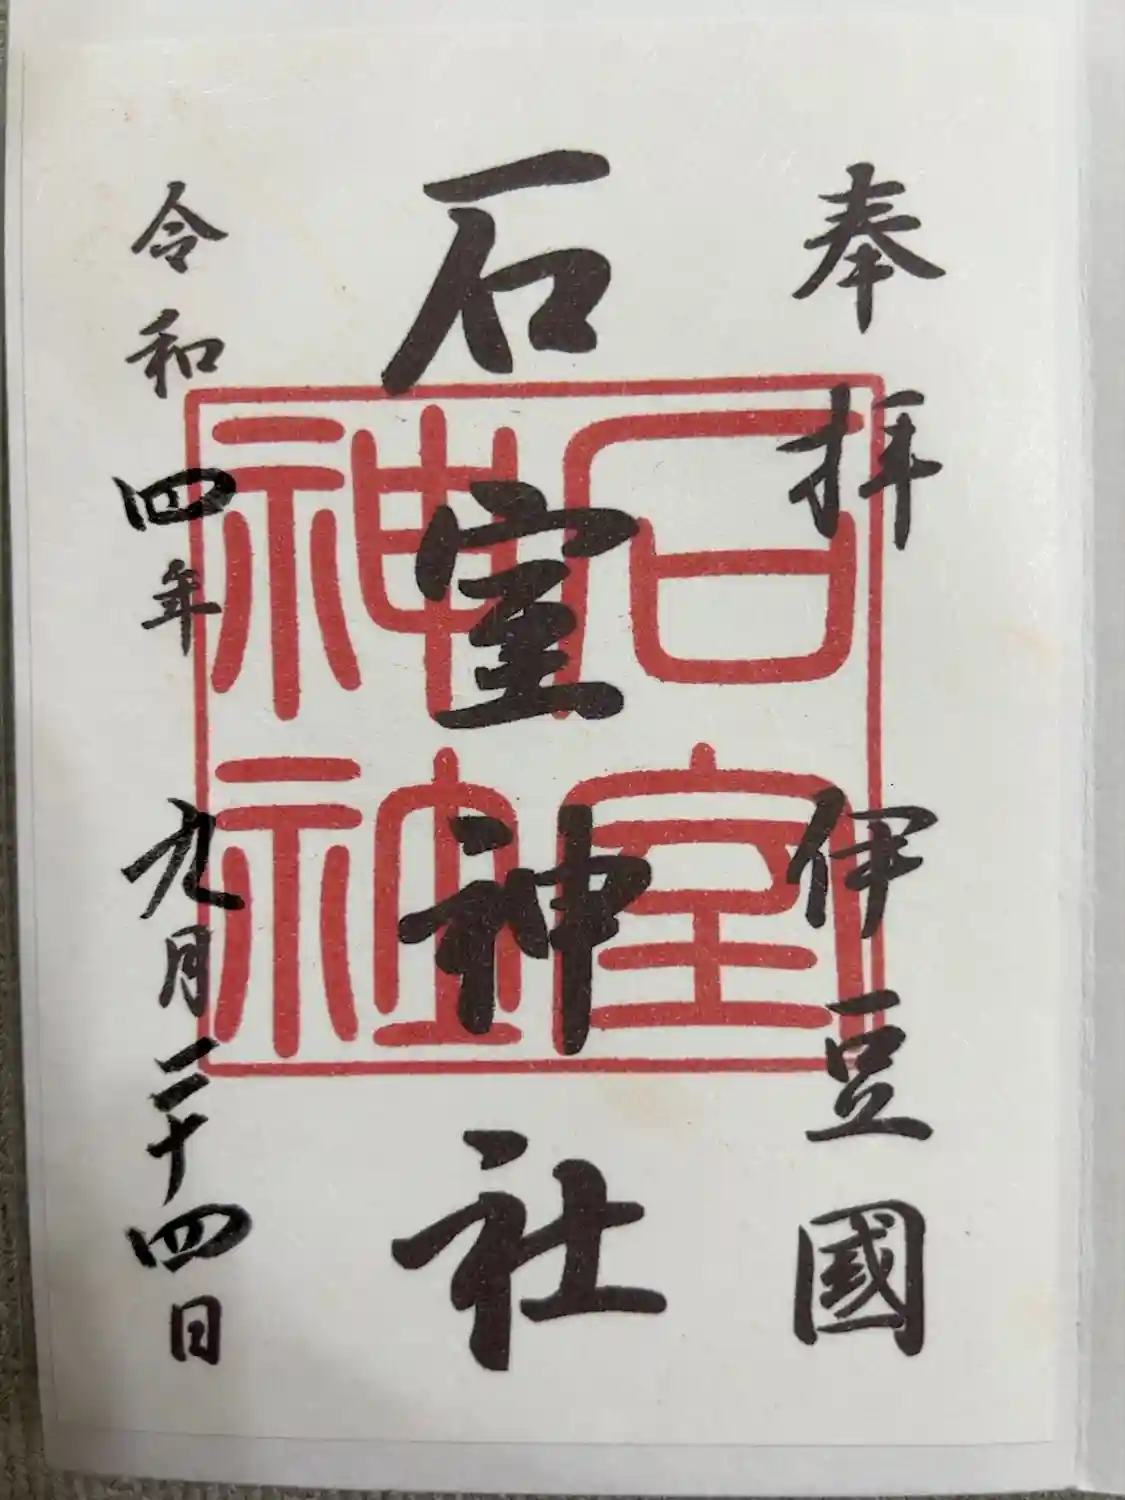 奉拝 伊豆國
石室神社
令和四年九月二十四日
石室
神社